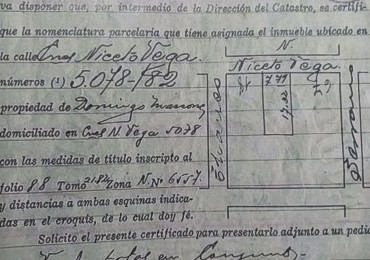 va disponer que, por intermedio de la Dirección del Catastro, se certifi
que la nomenclatura parcelaria que tiene asignada el inmueble ubicado en
la calle Cnel Niceto Vega.
números (1) 5.078-/82
propiedad de Domingo
domiciliado en Cnel N. Vega 5078
con las medidas de título inscripto al
folio 88 Tomo 2182 Zona N. Nº 6557
y distancias a ambas esquinas indica-
das en el croquis, de lo cual doy fé.
N.
Niceto Vega.
7.79
17.32
Thames
Serrano
Solicito el presente certificado para presentarlo adjunto a un pedi